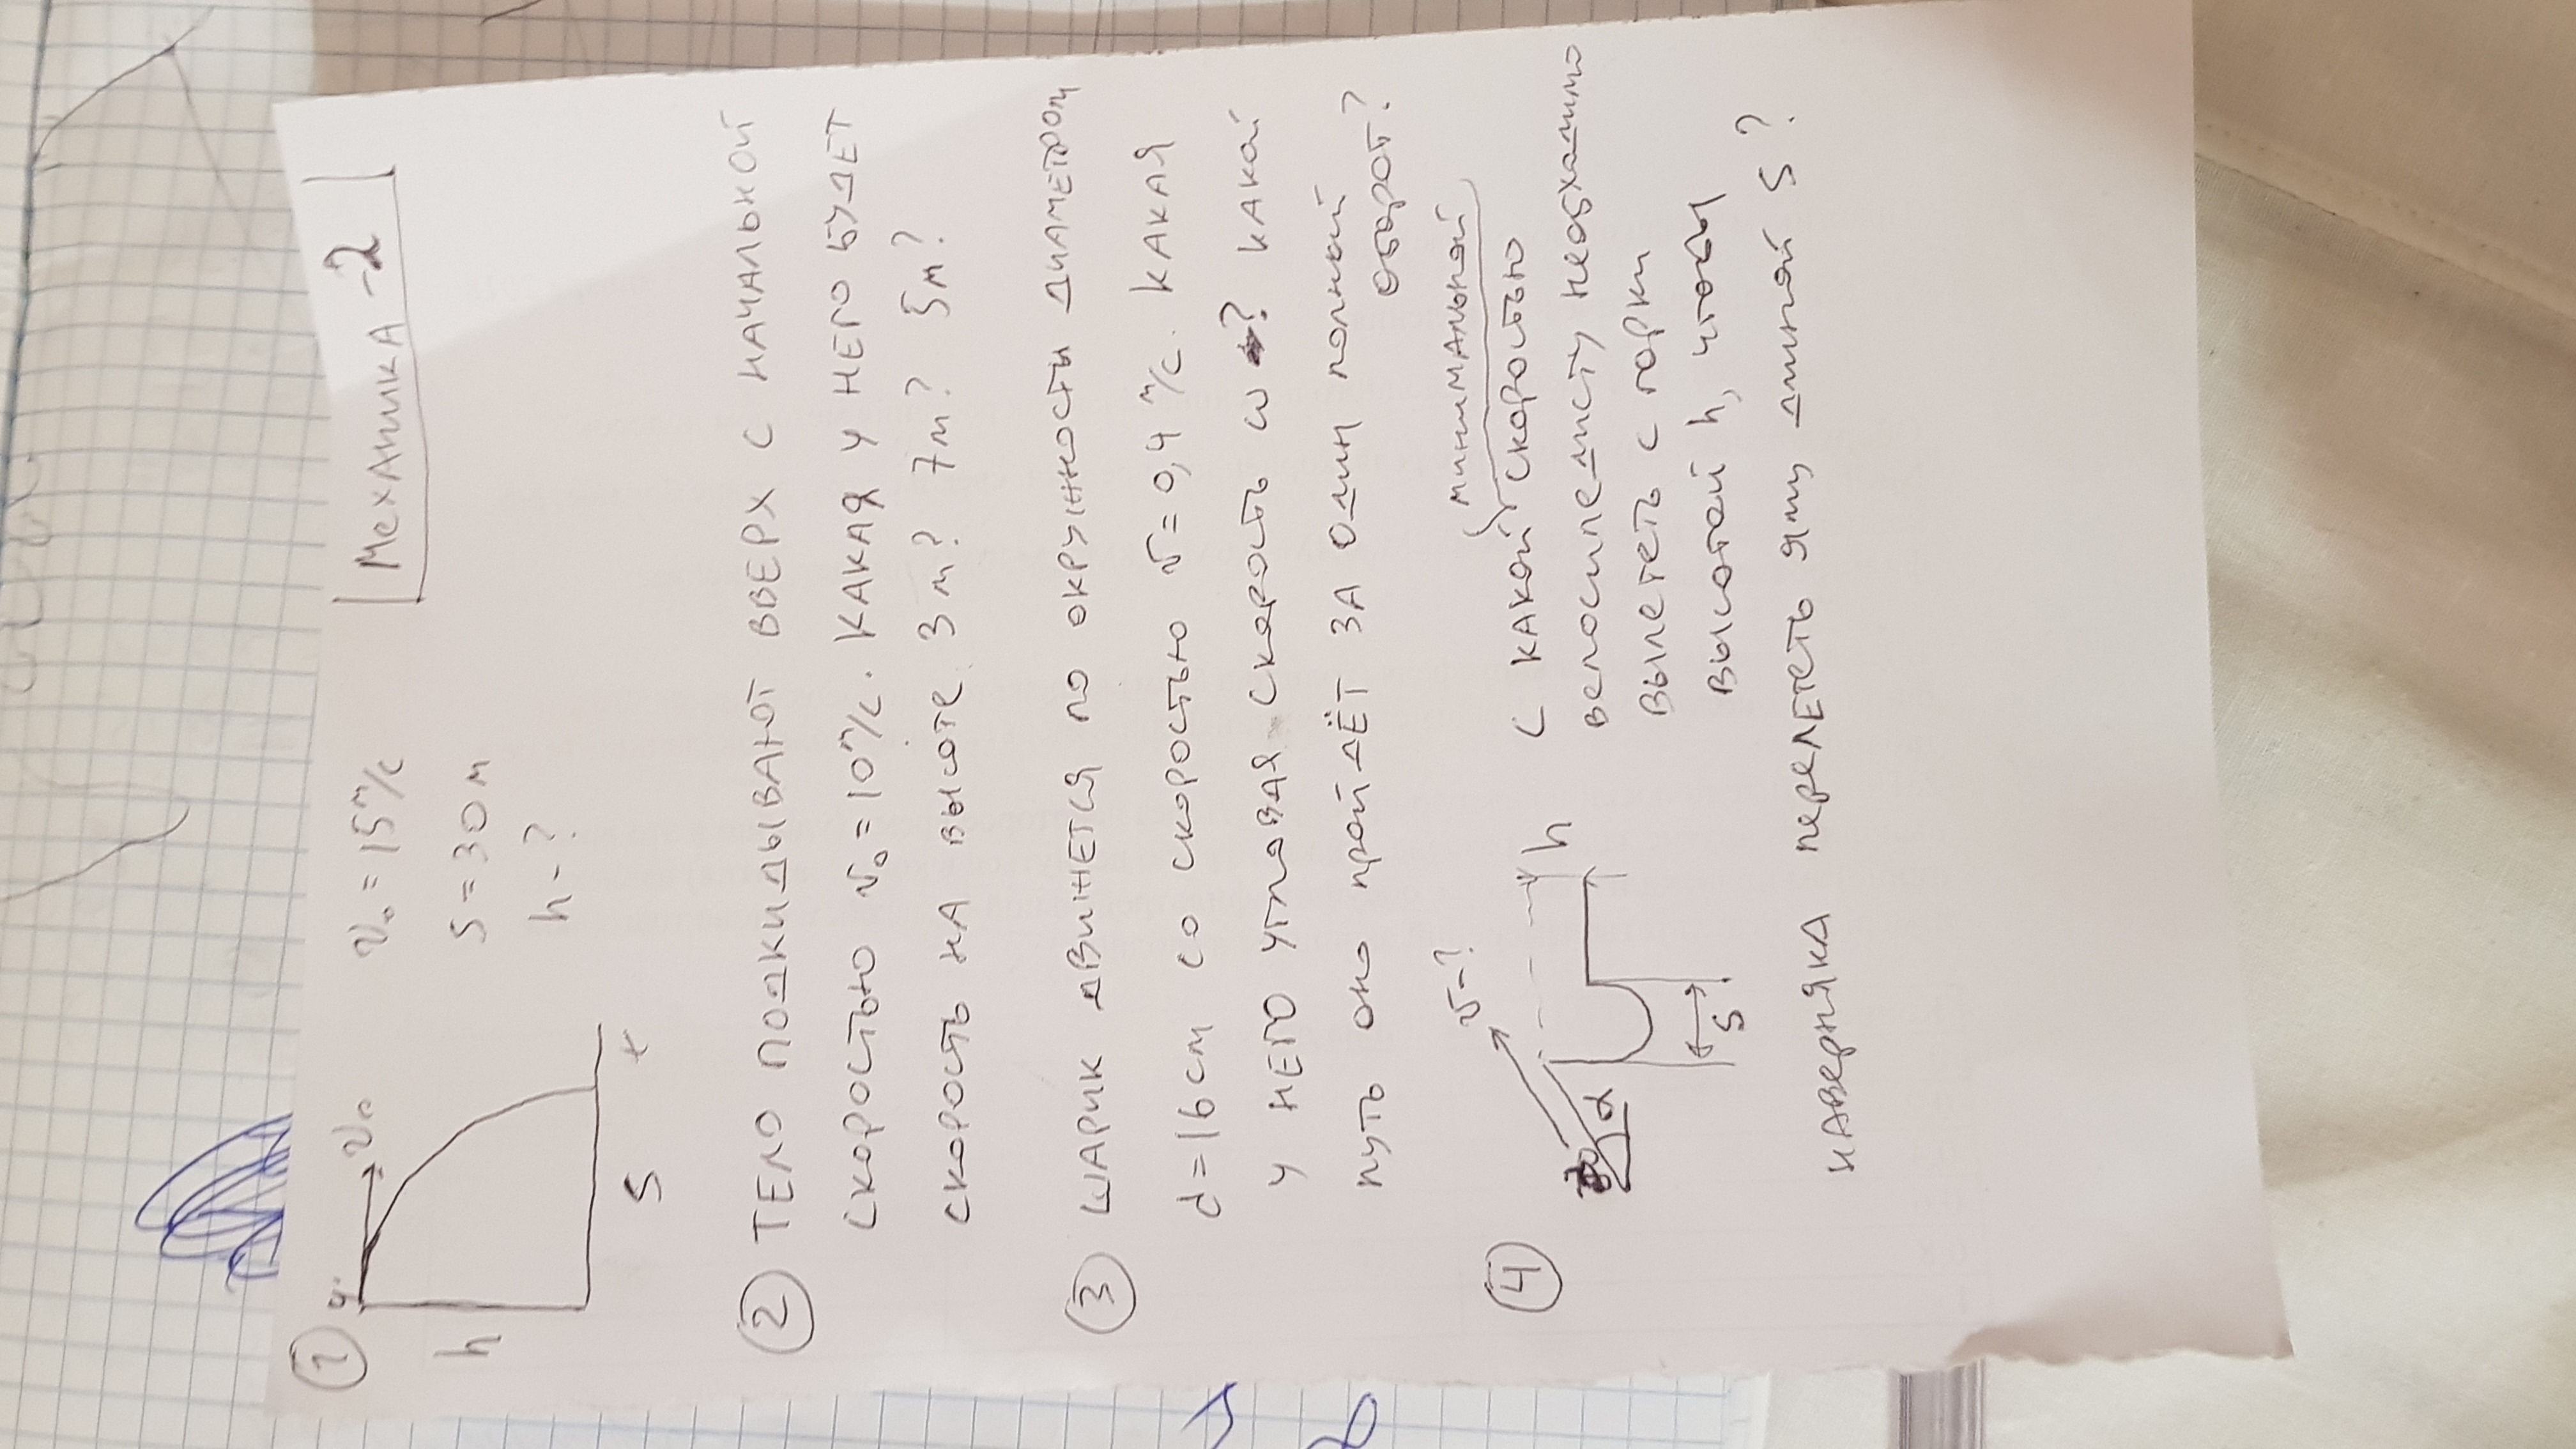 Механика-2
1
v₀
v₀ = 15 м/с
h
S = 30 м
h - ?
S
2 ТЕЛО ПОДКИДЫВАЮТ ВВЕРХ С НАЧАЛЬНОЙ
СКОРОСТЬЮ v₀ = 10 м/с. КАКАЯ У НЕГО БУДЕТ
СКОРОСТЬ НА ВЫСОТЕ 3 м? 7 м? 5 м?
3 ШАРИК ДВИЖЕТСЯ ПО ОКРУЖНОСТИ ДИАМЕТРОМ
d = 16 см СО СКОРОСТЬЮ v = 0,4 м/с. КАКАЯ
У НЕГО УГЛОВАЯ СКОРОСТЬ ω? КАКОЙ
ПУТЬ ОНО ПРОЙДЁТ ЗА ОДИН ПОЛНЫЙ
ОБОРОТ?
4
v - ?
минимальной
С КАКОЙ СКОРОСТЬЮ
α
h
велосипедисту необходимо
вылететь с горки
S
высотой h, чтобы
НАВЕРНЯКА перелететь яму длиной S?